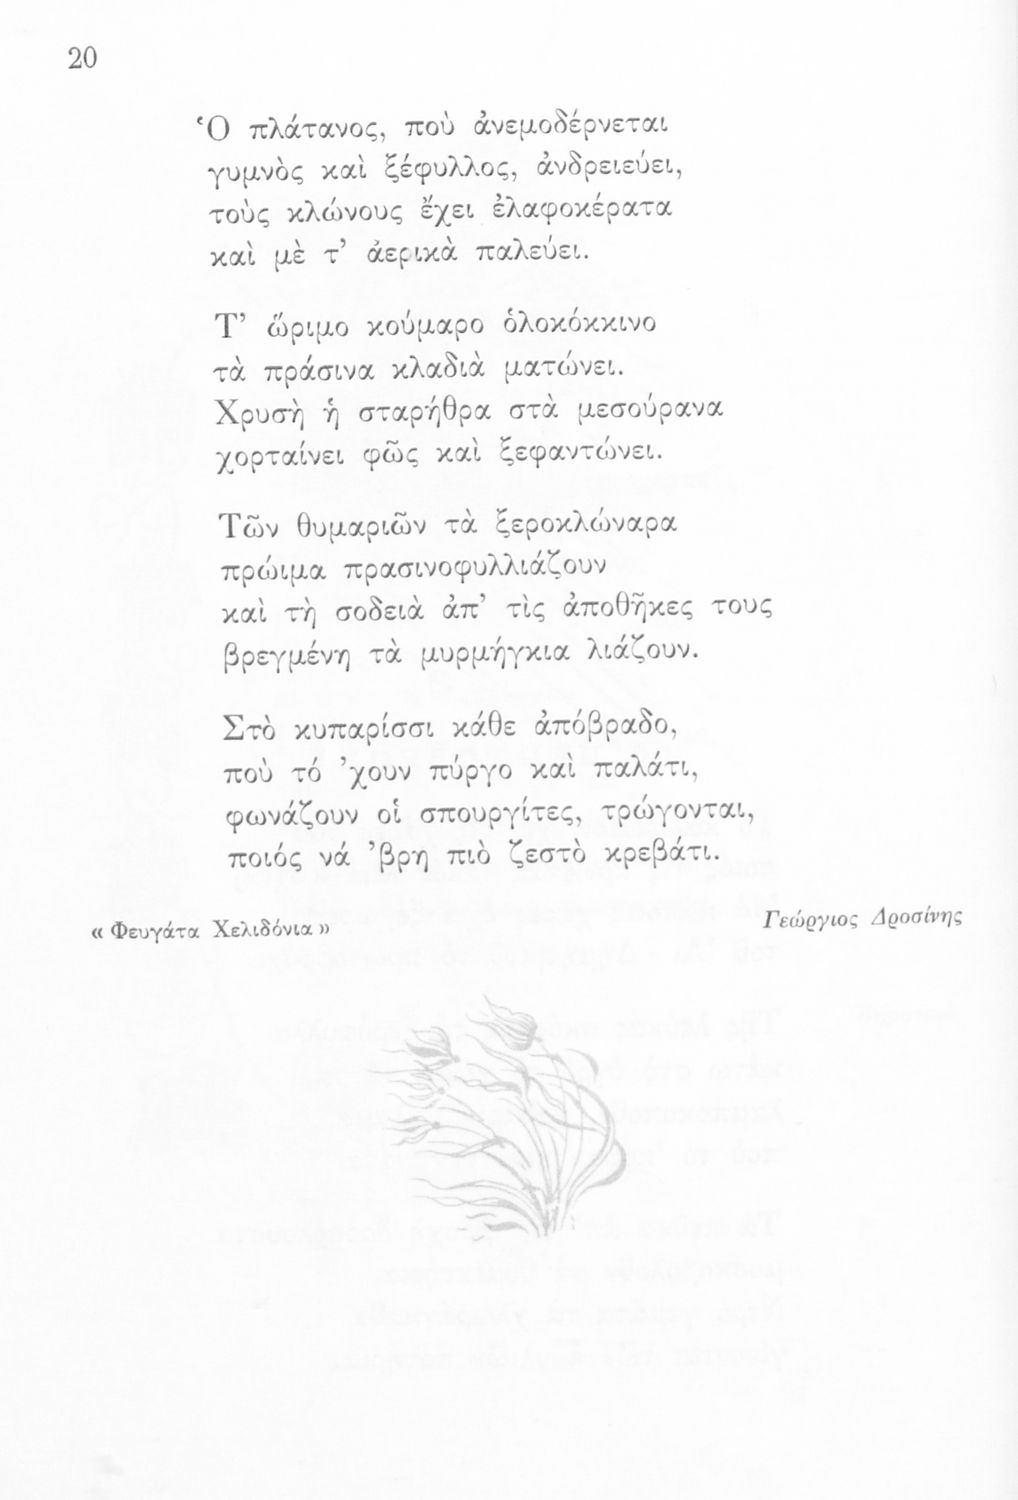 20
Ὁ πλάτανος, ποὺ ἀνεμοδέρνεται
γυμνὸς καὶ ξέφυλλος, ἀνδρειεύει,
τοὺς κλώνους ἔχει ἐλαφοκέρατα
καὶ μὲ τ’ ἀερικὰ παλεύει.
Τ’ ὥριμο κούμαρο ὁλοκόκκινο
τὰ πράσινα κλαδιὰ ματώνει.
Χρυσὴ ἡ σταρήθρα στὰ μεσούρανα
χορταίνει φῶς καὶ ξεφαντώνει.
Τῶν θυμαριῶν τὰ ξεροκλώναρα
πρώιμα πρασινοφυλλιάζουν
καὶ τὴ σοδειὰ ἀπ’ τὶς ἀποθῆκες τους
βρεγμένη τὰ μυρμήγκια λιάζουν.
Στὸ κυπαρίσσι κάθε ἀπόβραδο,
ποὺ τό ’χουν πύργο καὶ παλάτι,
φωνάζουν οἱ σπουργίτες, τρώγονται,
ποιός νά ’βρη πιὸ ζεστὸ κρεβάτι.
« Φευγάτα Χελιδόνια » Γεώργιος Δροσίνης